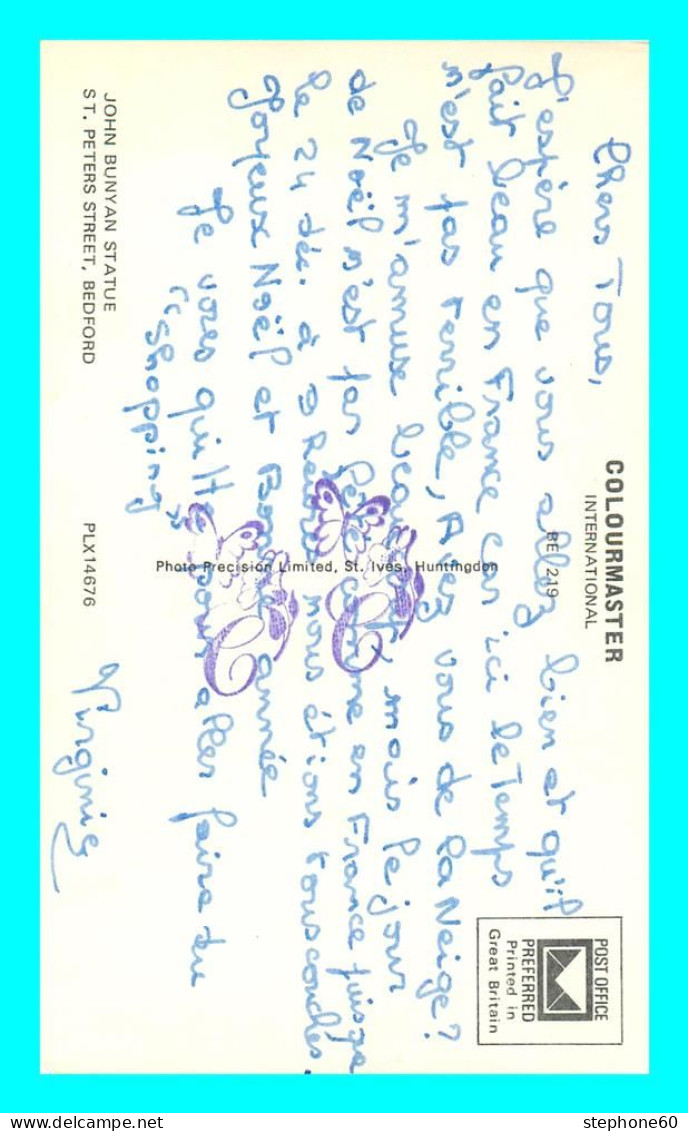 COLOURMASTER
INTERNATIONAL
BE 219
POST OFFICE
PREFERRED
Printed in
Great Britain
Chers Tous,
J'espère que vous allez bien et qu'il
fait beau en France car ici le Temps
n'est pas terrible, Avez vous de la Neige?
Je m'amuse beaucoup mais le jour
de Noël n'est pas comme en France puisque
le 24 déc. à 9 nous étions tous couchés.
Joyeux Noël et Bonne année
Je vous quitte pour aller faire du
"shopping"
Virginie
Photo Precision Limited, St. Ives, Huntingdon
JOHN BUNYAN STATUE
ST. PETERS STREET, BEDFORD
PLX14676
stephone60